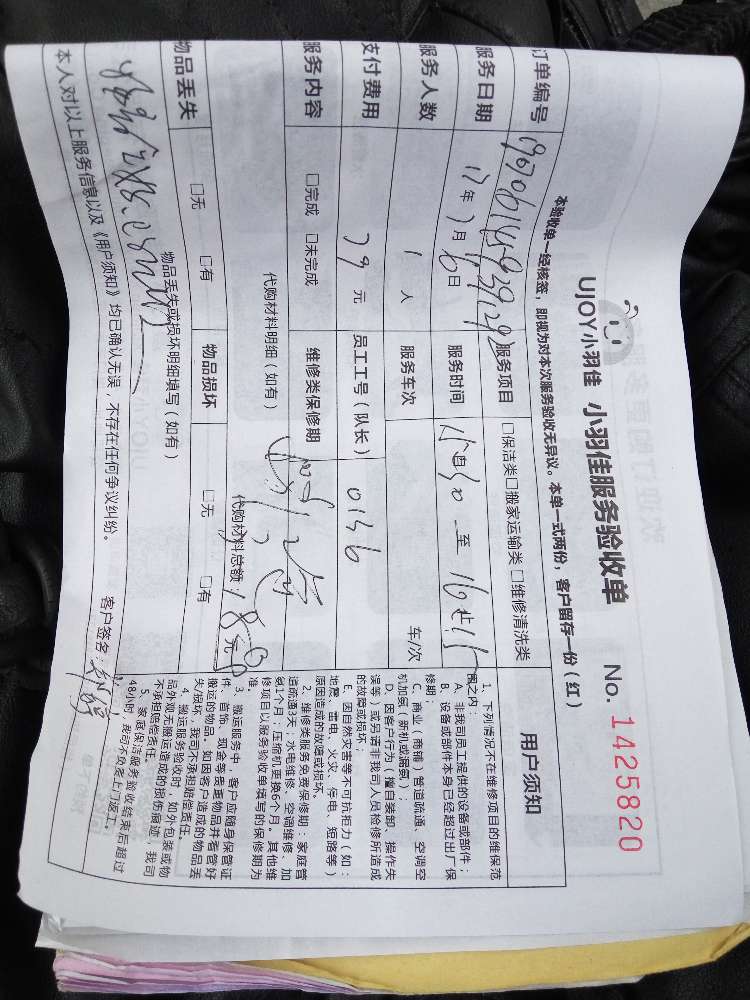 UJOY小羽佳 小羽佳服务验收单 No. 1425820
本验收单一经核签，即视为对本次服务验收无异议。本单一式两份，客户留存一份（红）
订单编号 服务项目 □保洁类□搬家运输类□维修清洗类
服务日期 17年 7月 日 服务时间 至
服务人数 1 人 服务车次 车/次
支付费用 79 元 员工工号（队长） 0136
服务内容 □完成 □未完成 维修类保修期
代购材料明细（如有）
代购材料总额 元
物品丢失 □无 □有 物品损坏 □无 □有
物品丢失或损坏明细填写（如有）
本人对以上服务信息以及《用户须知》均已确认无误，不存在任何争议纠纷。 客户签名：
用户须知
1、下列情况不在维修项目的维保范
围之内：
A、非我司员工提供的设备或部件；
B、设备或部件本身已经超过出厂保
修期；
C、商业（商铺）管道疏通、空调空
机加氨（新机或漏氨）；
D、因客户行为（擅自装卸、操作失
误等）或另请非我司人员检修所造成
的故障或损坏；
E、因自然灾害等不可抗拒力（如：
地震、雷电、火灾、停电、短路等）
原因造成的故障或损坏。
2、维修类服务免费保修期：家庭管
道疏通3天；水电维修、空调维修、加
氨1个月；压缩机更换6个月。其他维
修项目以服务验收单填写的保修期为
准。
3、搬运服务中，客户应随身保管证
件、首饰、现金等贵重物品并看管好
搬运的物品。如因客户造成的物品丢
失/损坏，我司不承担赔偿责任。
4、搬运服务验收时，如外包装或物
品外观无搬运造成的损伤痕迹，我司
不承担赔偿责任。
5、家庭保洁服务验收结束后超过
48小时，我司不负责上门返工。